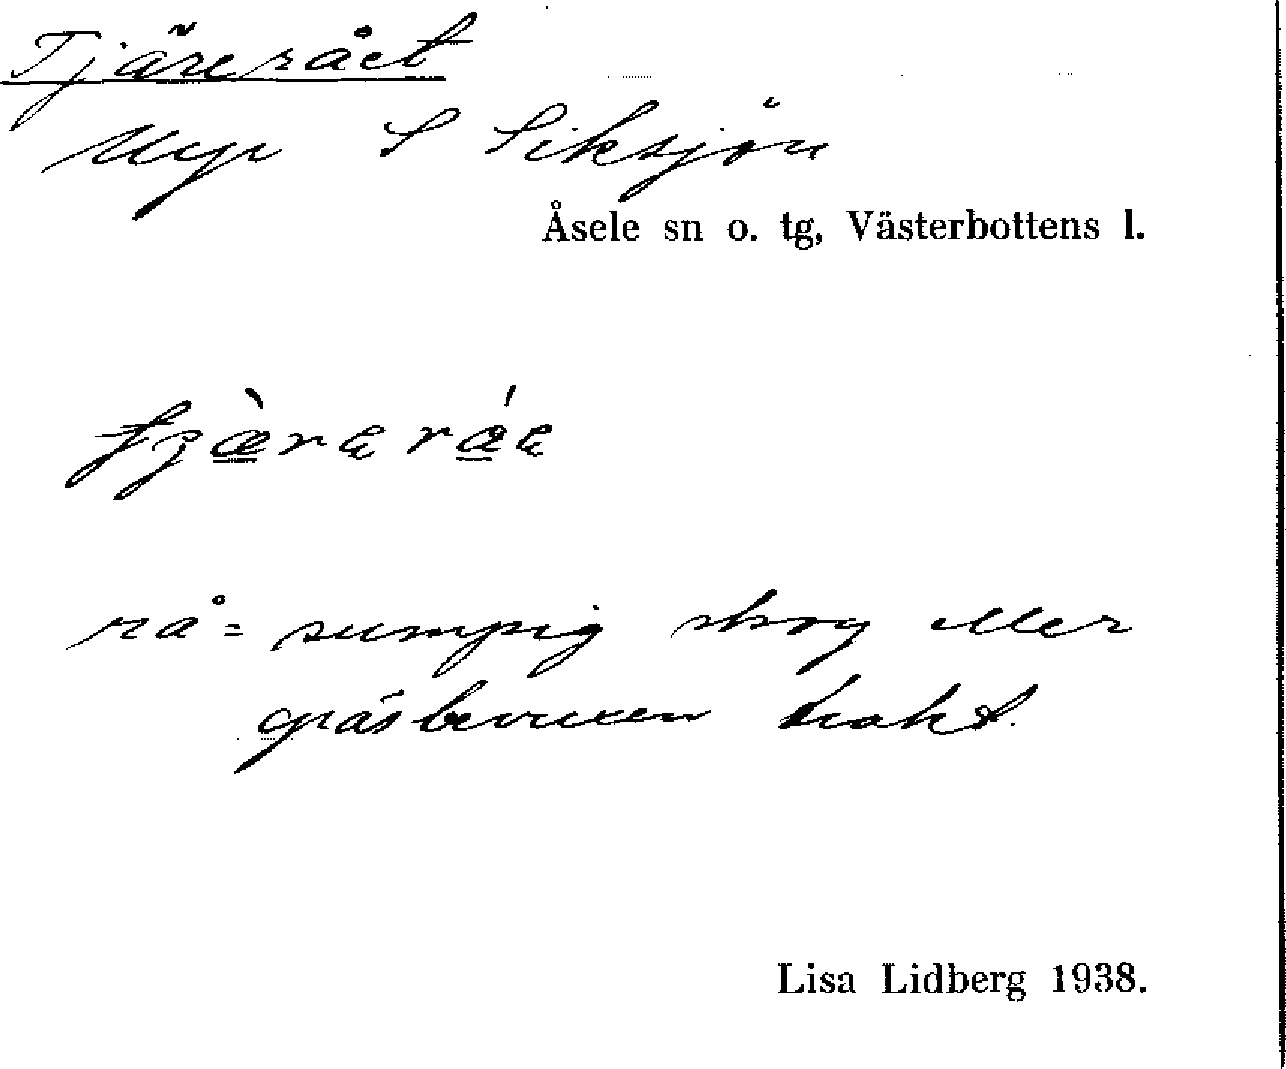 Tjärerået
Myr S Siksjön
Åsele sn o. tg, Västerbottens l.
rå = sumpig skog eller
gräsbevuxen trakt.
Lisa Lidberg 1938.